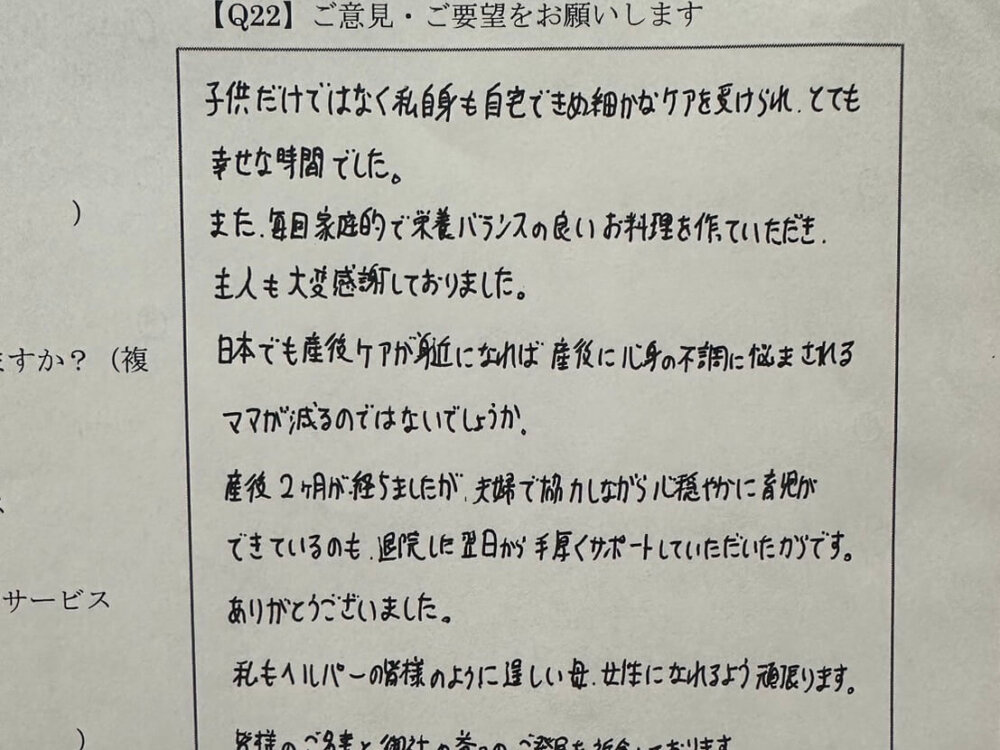 【Q22】ご意見・ご要望をお願いします
子供だけではなく私自身も自宅できめ細かなケアを受けられ、とても
幸せな時間でした。
)
また、毎回家庭的で栄養バランスの良いお料理を作っていただき、
主人も大変感謝しておりました。
ますか？（複
日本でも産後ケアが身近になれば産後に心身の不調に悩まされる
ママが減るのではないでしょうか。
産後2ヶ月が経ちましたが、夫婦で協力しながら心穏やかに育児が
できているのも、退院した翌日から手厚くサポートしていただいたからです。
サービス
ありがとうございました。
私もヘルパーの皆様のように逞しい母、女性になれるよう頑張ります。
)
皆様のご多幸と御社の益々のご発展を祈念しております